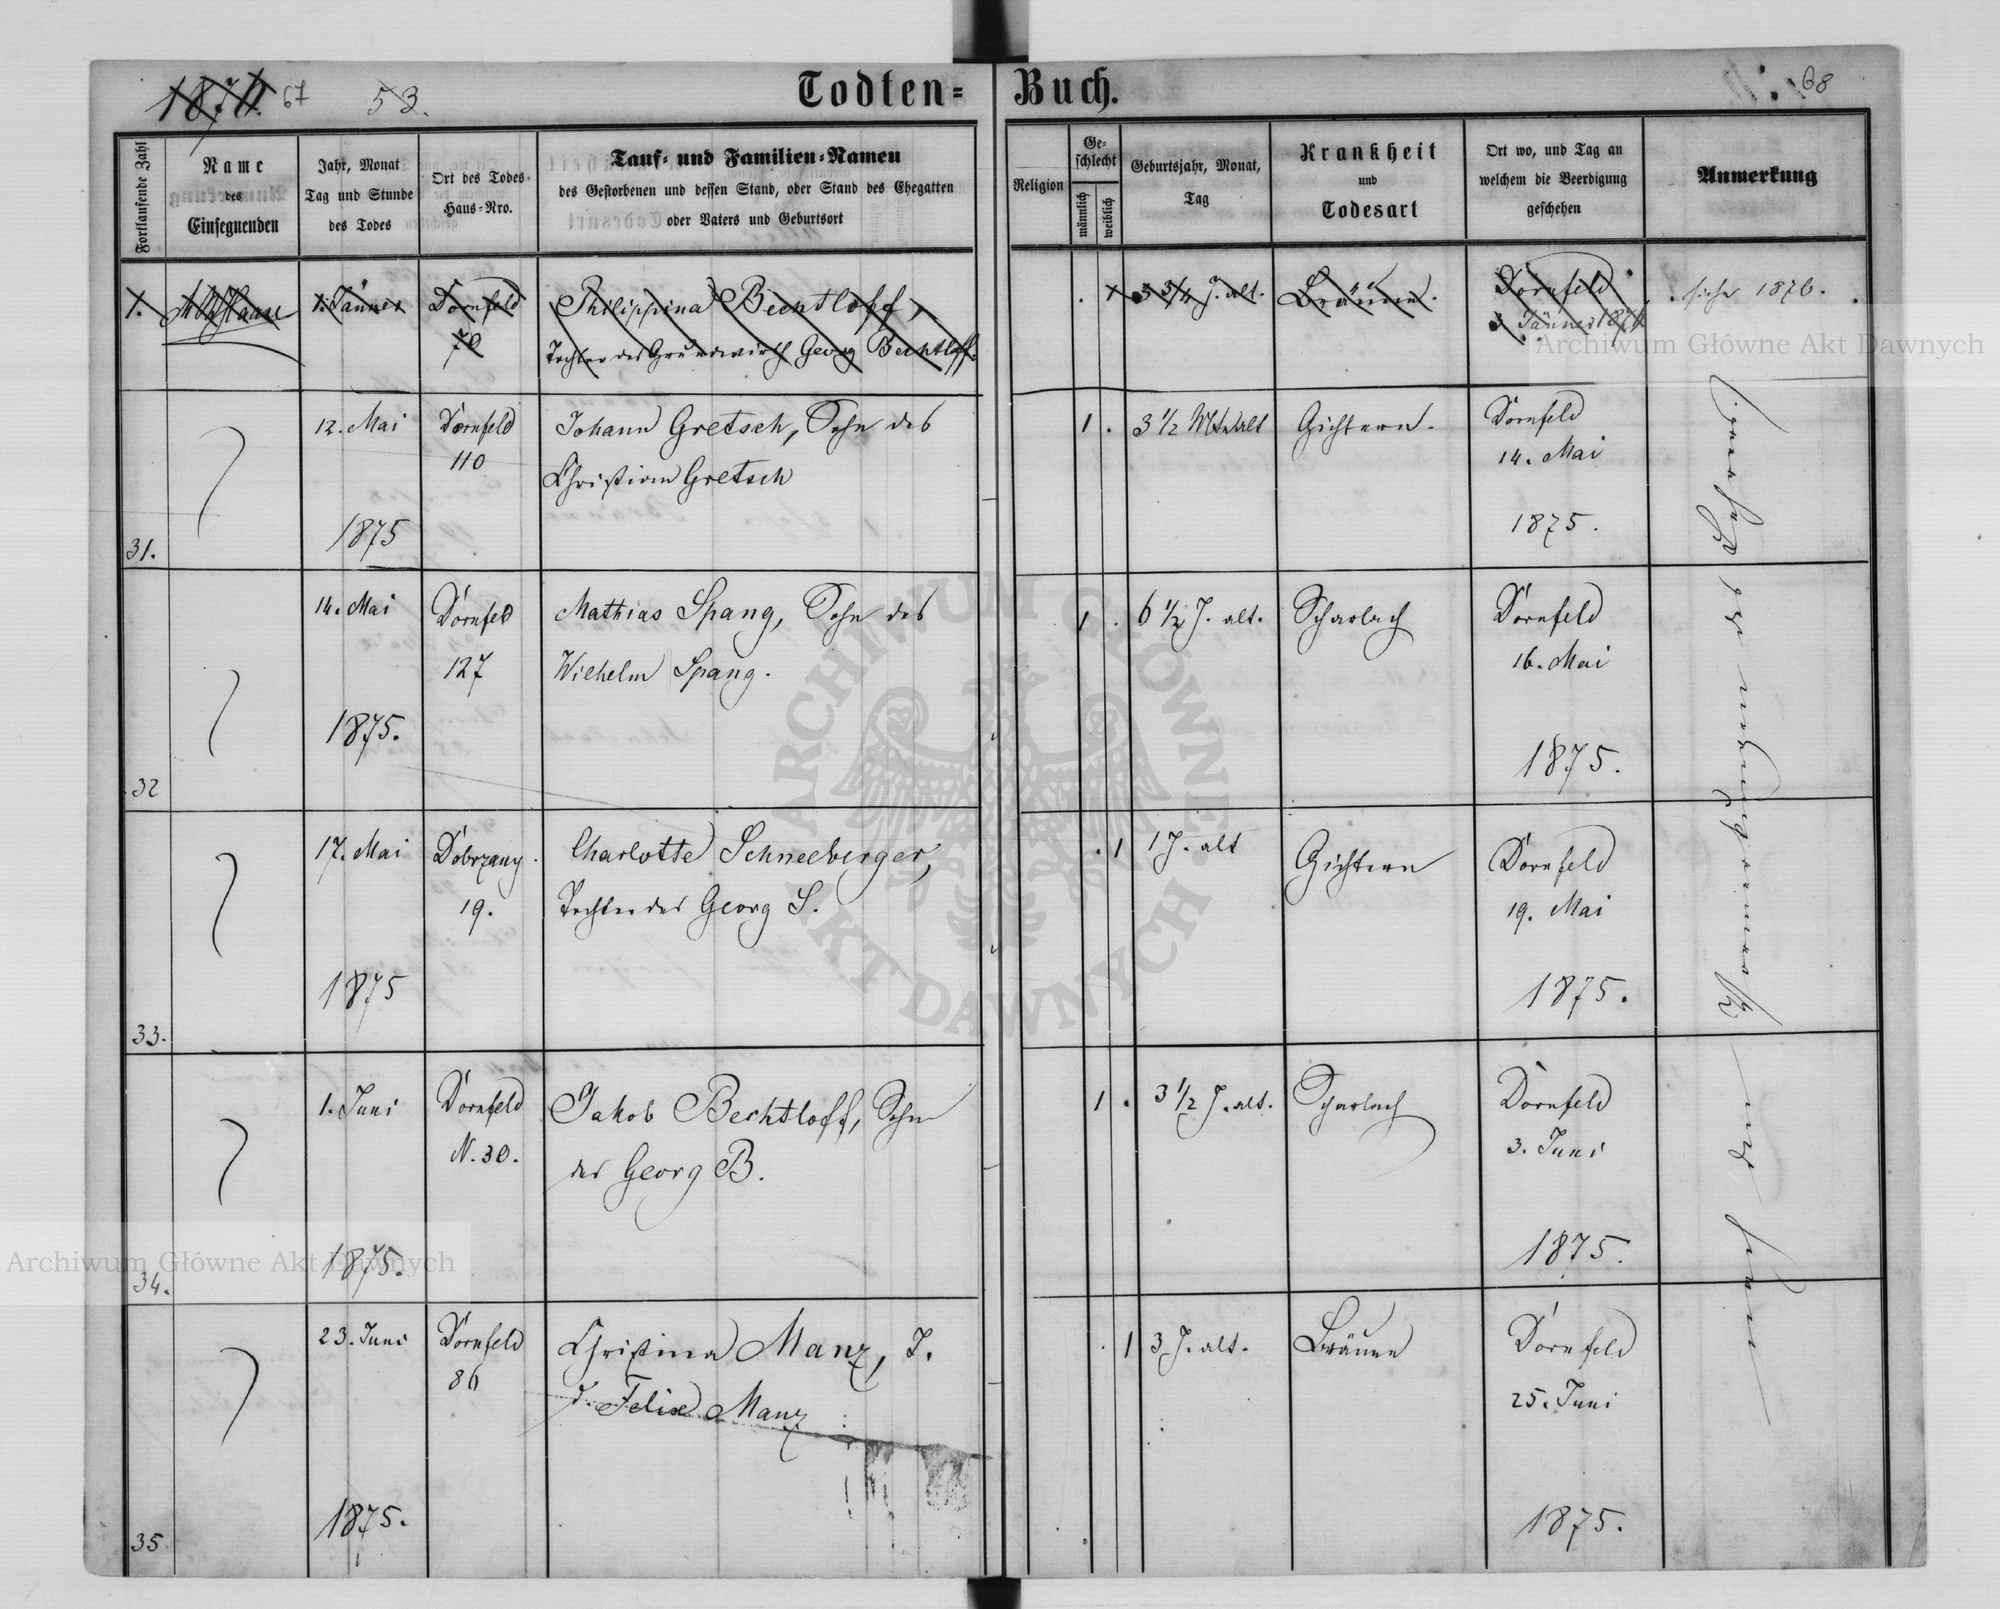 67
53.
Todten-
Buch.
68
Fortlaufende Zahl
Name
des
Einsegnenden
Jahr, Monat
Tag und Stunde
des Todes
Ort des Todes
Haus-Nro.
Tauf- und Familien-Namen
des Gestorbenen und dessen Stand, oder Stand des Ehegatten
oder Vaters und Geburtsort
Religion
Ge-
schlecht
männlich
weiblich
Geburtsjahr, Monat,
Tag
Krankheit
und
Todesart
Ort wo, und Tag an
welchem die Beerdigung
geschehen
Anmerkung
1.
1. Jänner
Dornfeld
70
Philippina Bechtloff,
Tochter des Grundwirth Georg Bechtloff.
1
3 3/4 J. alt.
Bräune.
Dornfeld
3 Jänner
siehe 1876.
31.
12. Mai
1875
Dornfeld
110
Johann Gretsch, Sohn des
Christian Gretsch
1
3 1/2 Mt alt
Gichtern.
Dornfeld
14. Mai
1875.
32
14. Mai
1875.
Dornfeld
127
Mathias Spang, Sohn des
Wilhelm Spang.
1
6 1/2 J. alt.
Scharlach
Dornfeld
16. Mai
1875.
33.
17. Mai
1875
Dobrzany
19.
Charlotte Schneeberger,
Tochter des Georg S.
1
1 J. alt
Gichtern
Dornfeld
19. Mai
1875.
34.
1. Juni
1875.
Dornfeld
N. 30.
Jakob Bechtloff, Sohn
des Georg B.
1
3 1/2 J. alt.
Scharlach
Dornfeld
3. Juni
1875.
35
23. Juni
1875.
Dornfeld
86
Christina Manz, T.
d. Felix Manz
1
3 J. alt.
Bräune
Dornfeld
25. Juni
1875.
Archiwum Główne Akt Dawnych
Archiwum Główne Akt Dawnych
ARCHIWUM GŁÓWNE AKT DAWNYCH